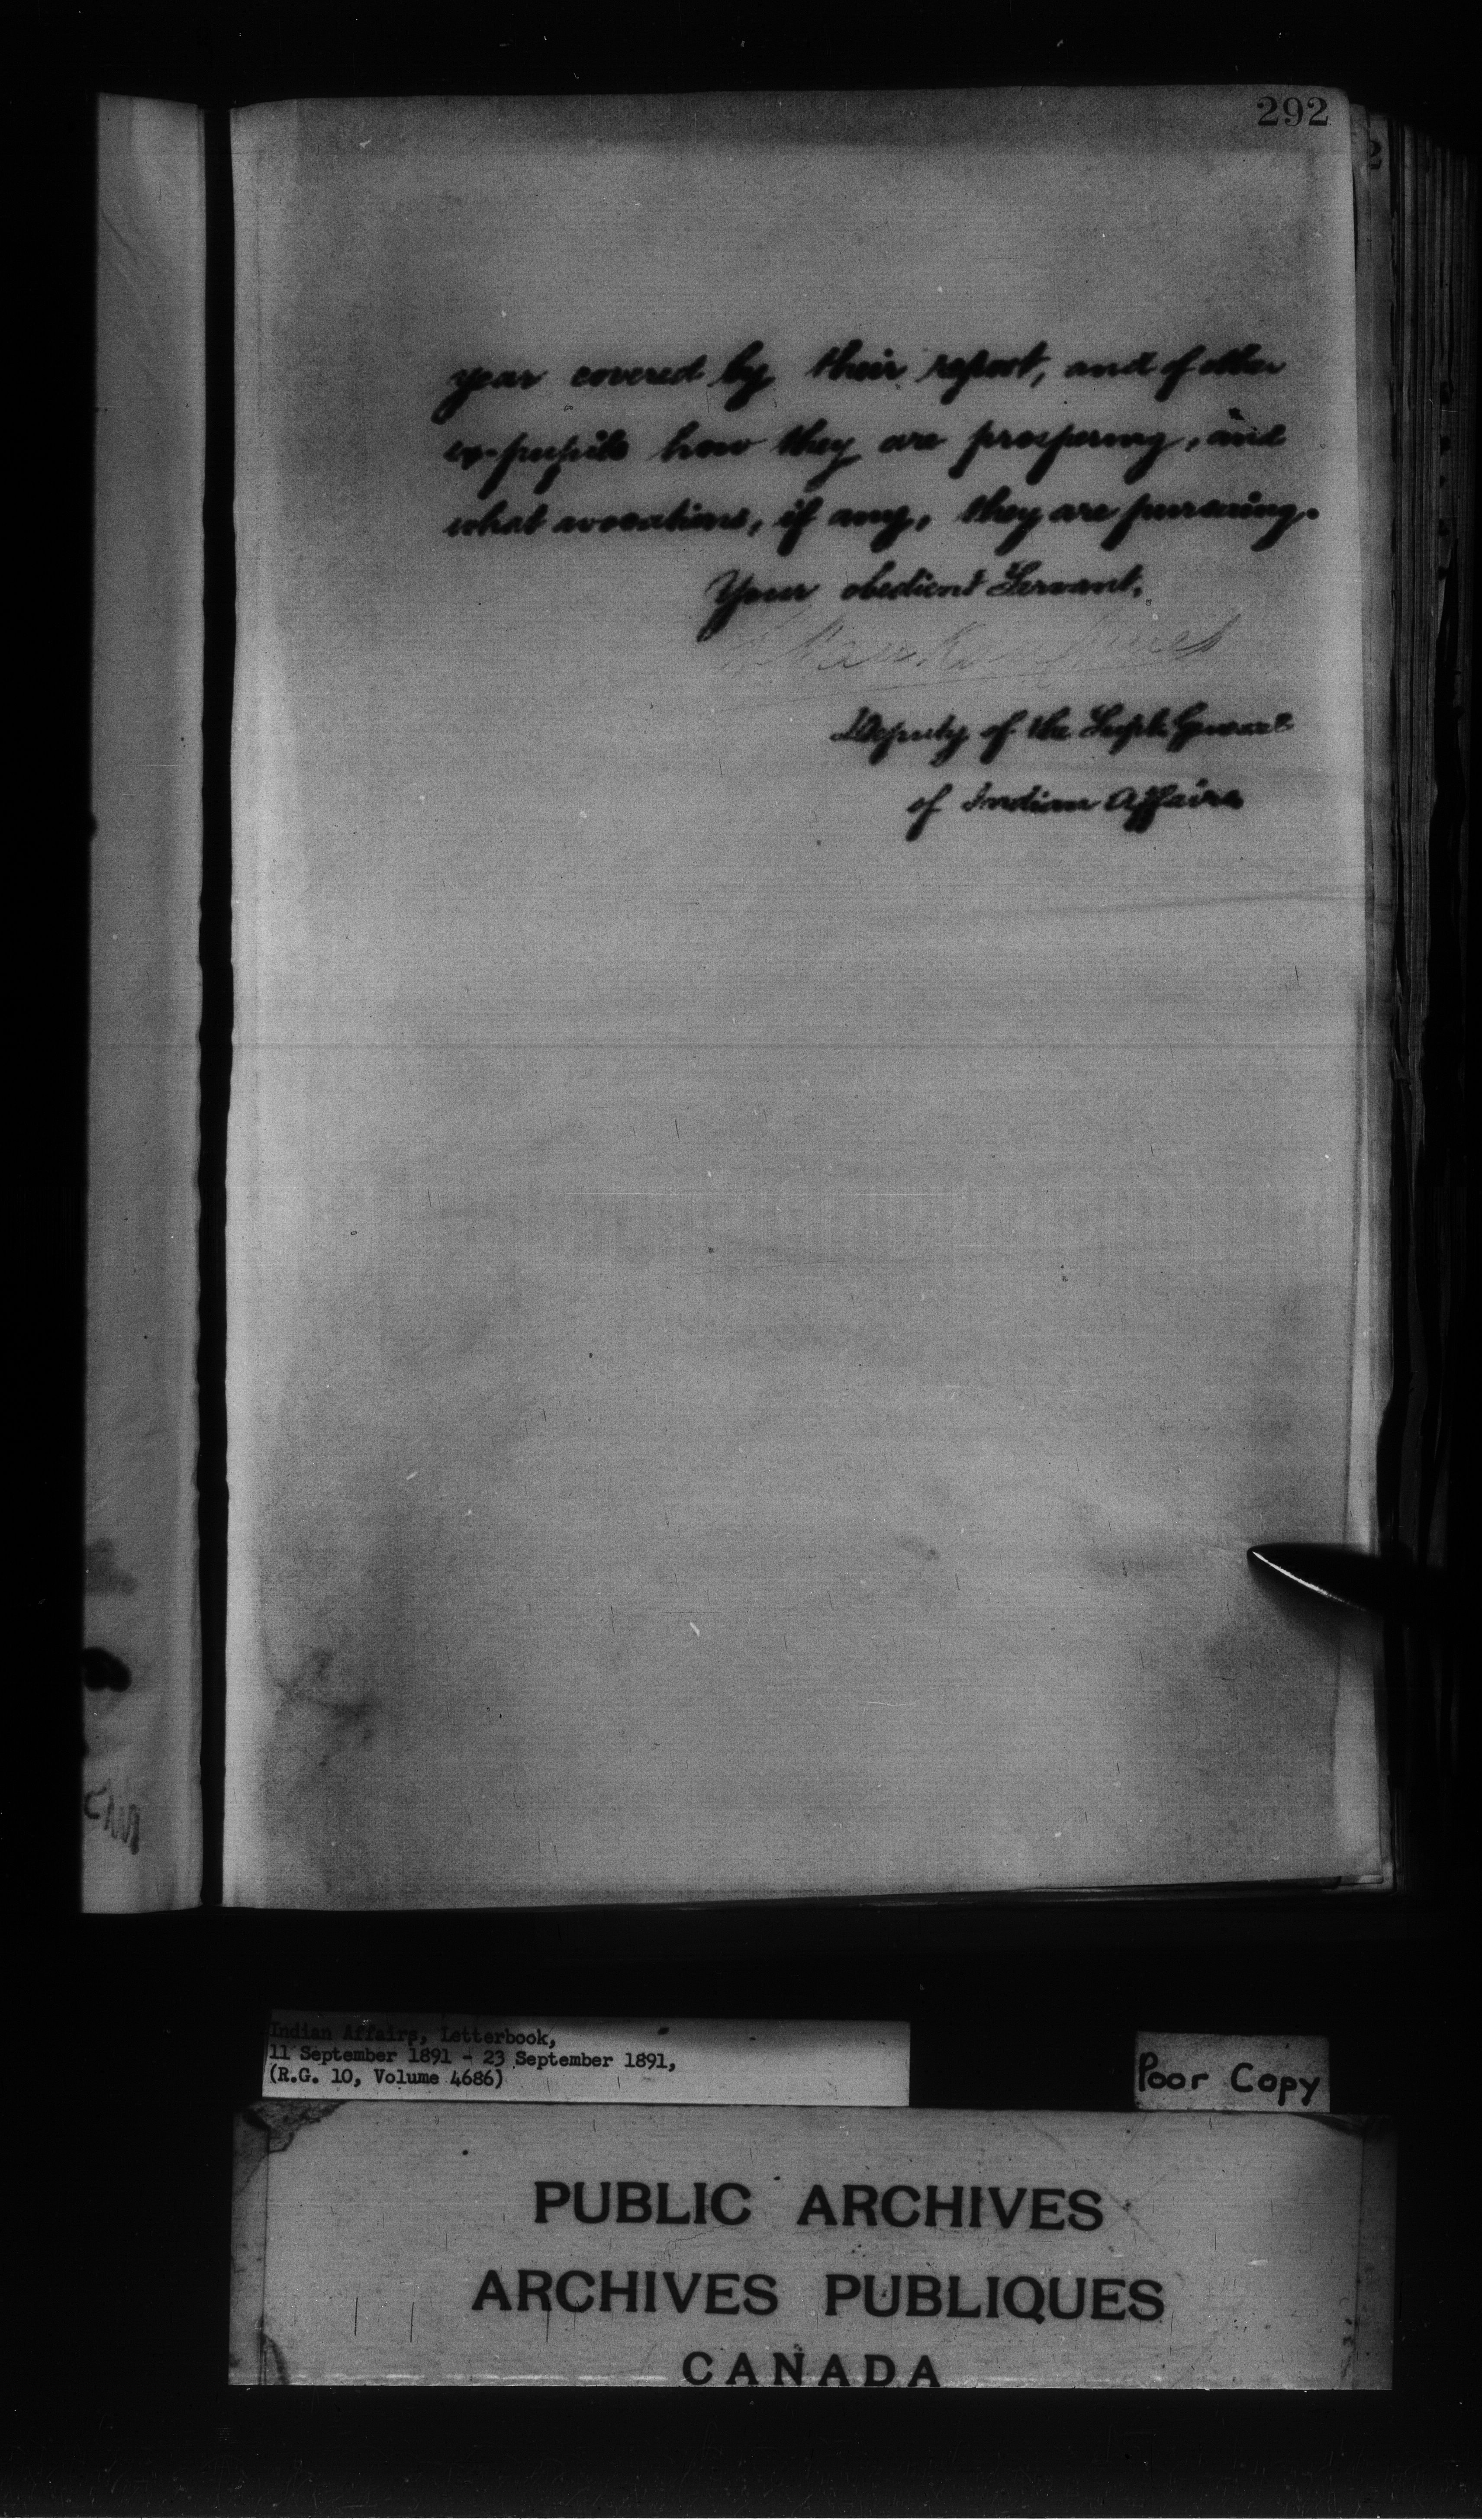 292
year covered by their report, and of other
ex-pupils how they are prospering, and
what avocations, if any, they are pursuing.
Your obedient Servant,
Deputy of the Supt. General
of Indian Affairs
Indian Affairs, Letterbook,
11 September 1891 - 23 September 1891,
(R.G. 10, Volume 4686)
Poor Copy
PUBLIC ARCHIVES
ARCHIVES PUBLIQUES
CANADA